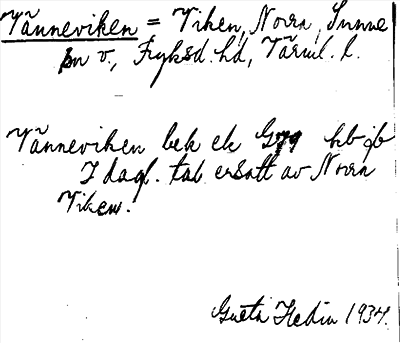 Vänneviken = Viken, Norra, Sunne
sn v., Fryksd. hd, Värml. l.
Vänneviken bek ek Ggg hb jb
I dagl. tal ersatt av Norra
Viken.
Greta Hedin 1934.